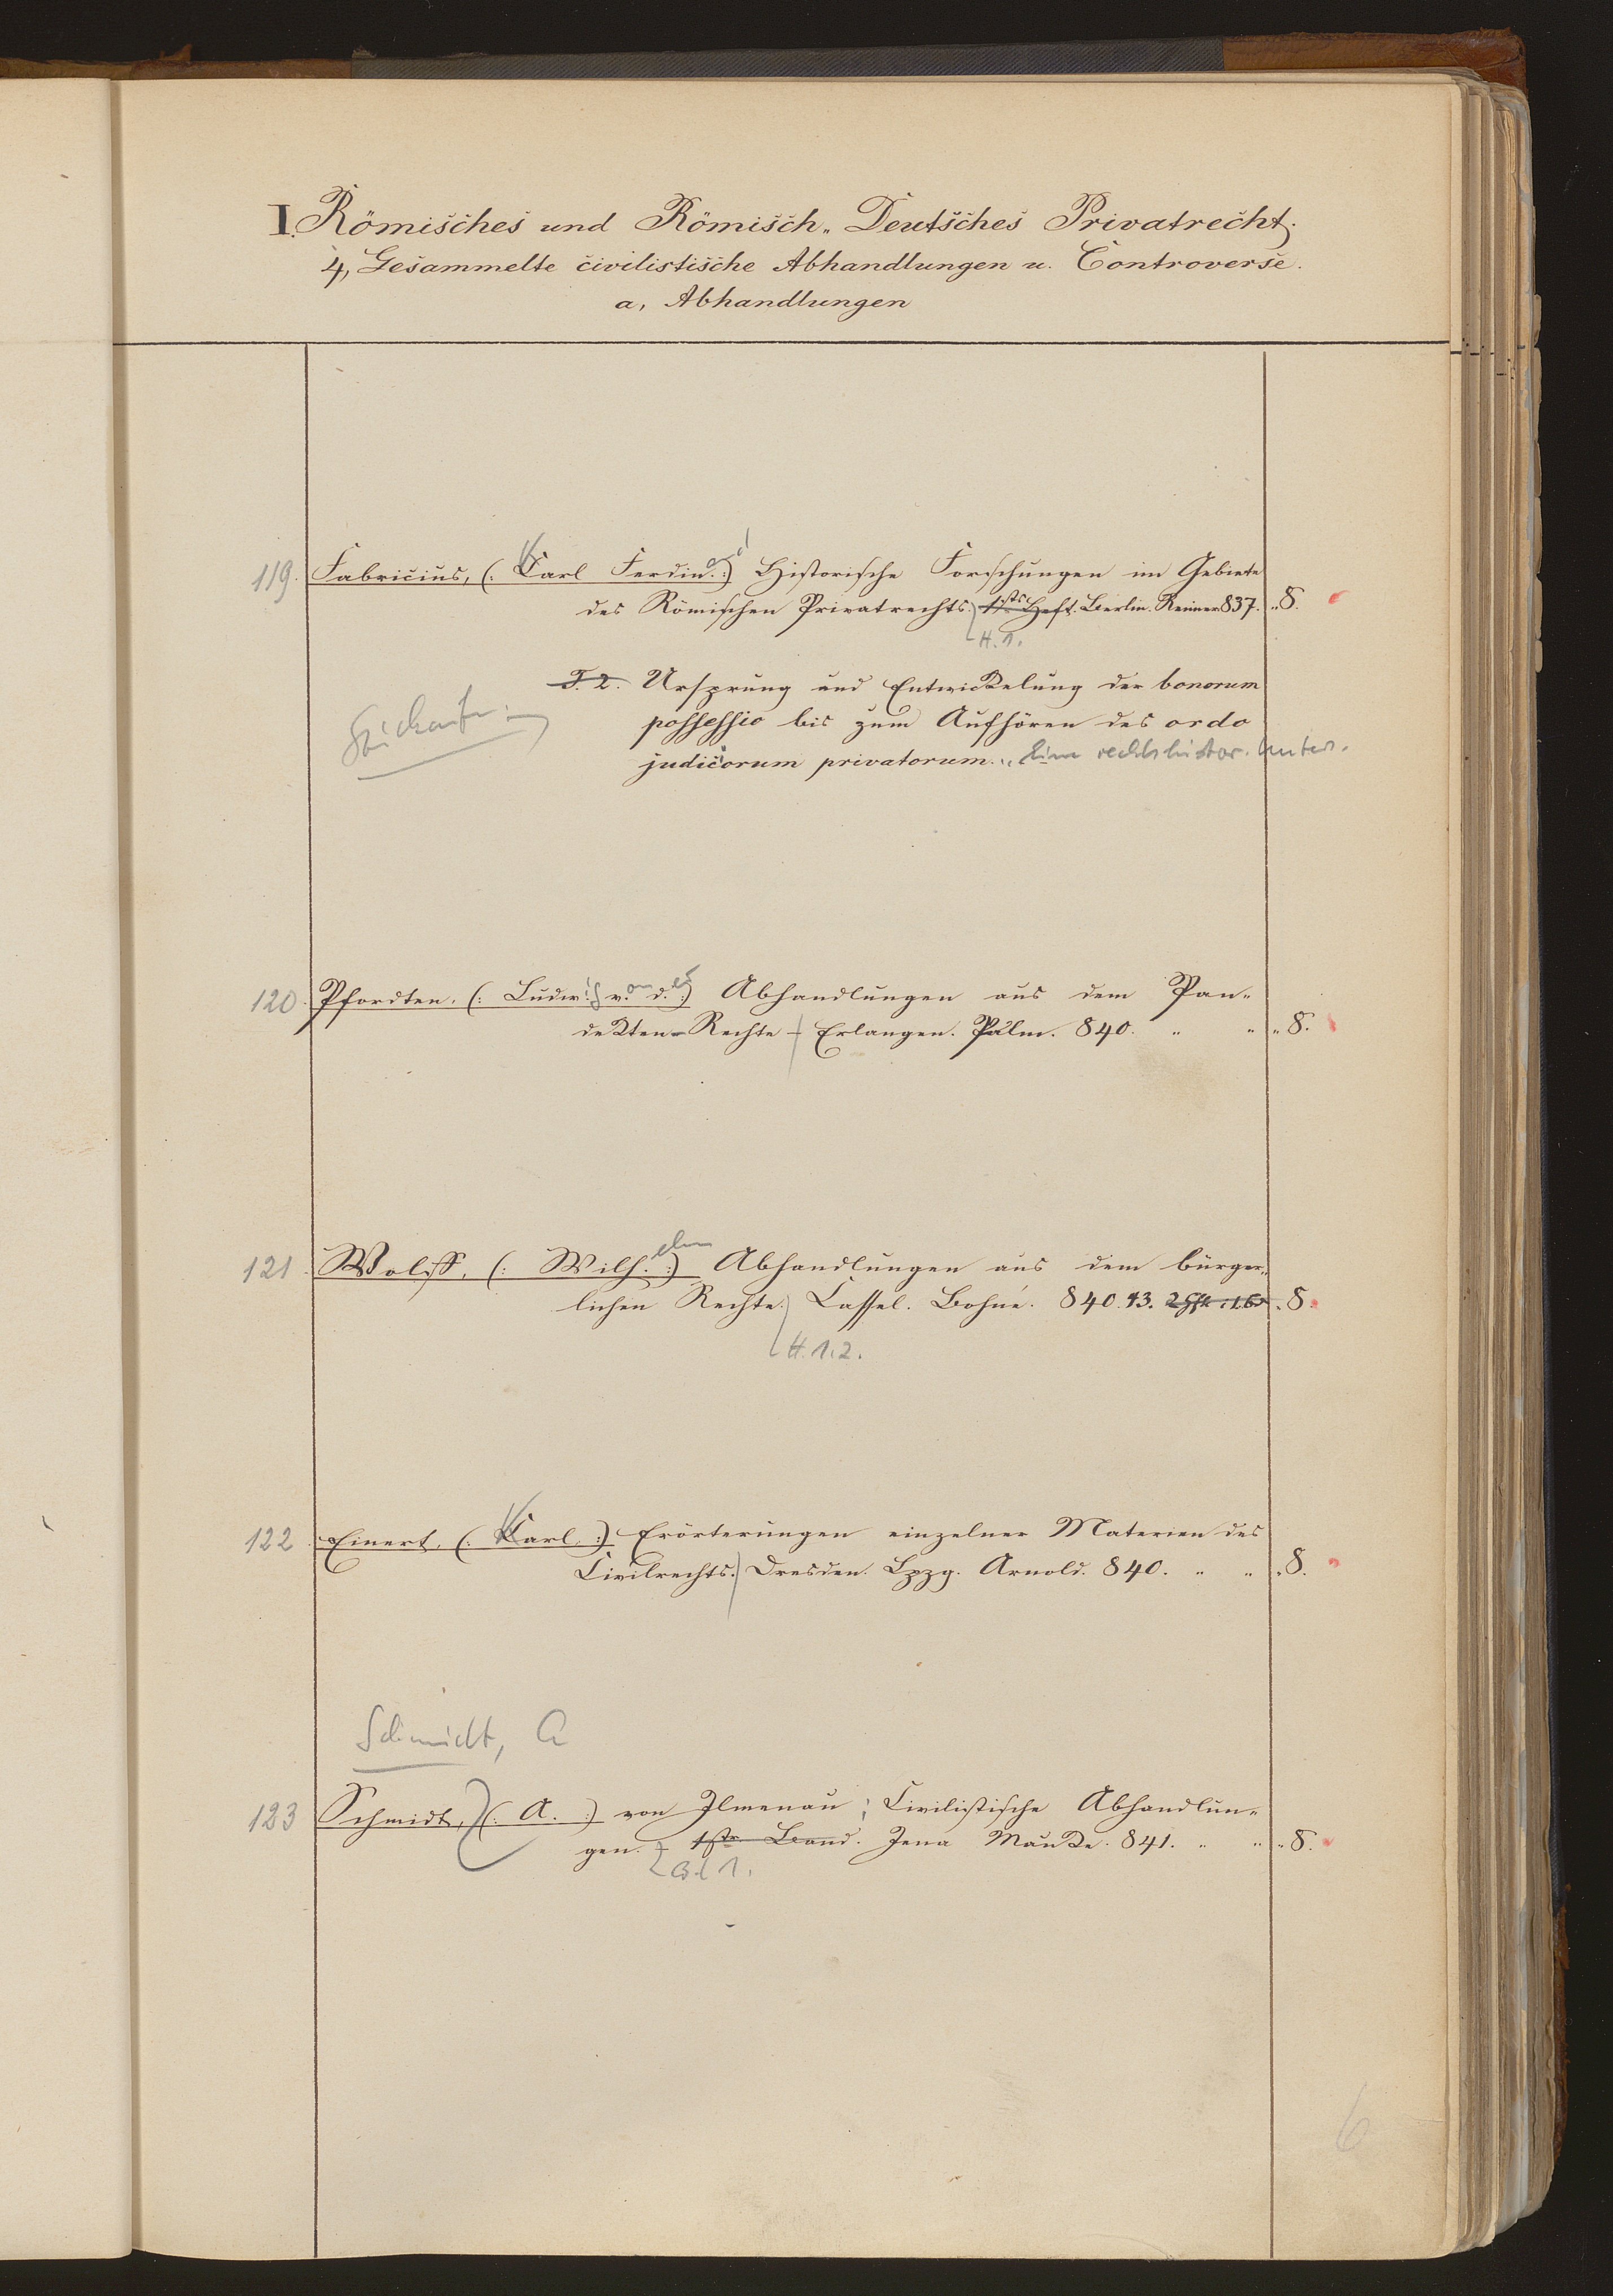 I. Römisches und Römisch-Deutsches Privatrecht.
4, Gesammelte civilistische Abhandlungen u. Controverse.
a, Abhandlungen
119. Fabricius, (: Carl Ferdinand :) Historische Forschungen im Gebiete
des Römischen Privatrechts. 1stes Heft. Berlin. Reimer 837. „ 8.
H. 1.
T. 2. Ursprung und Entwickelung der bonorum
possessio bis zum Aufhören des ordo
judiciorum privatorum. „ Eine rechtshistor. Unters.
120. Pfordten, (: Ludwig von der :) Abhandlungen aus dem Pan-
dekten-Rechte. Erlangen. Palm. 840. „ „ „ 8.
121. Wolff, (: Wilhelm :) Abhandlungen aus dem bürger-
lichen Rechte. Cassel. Bohné. 840. 43. „ 8.
H. 1. 2.
122. Einert, (: Karl :) Erörterungen einzelner Materien des
Civilrechts. Dresden. Lpzg. Arnold. 840. „ „ „ 8.
Schmidt, A
123. Schmidt, (: A. :) von Ilmenau; Civilistische Abhandlun-
gen. 1ster Band. Jena Mauke. 841. „ „ „ 8.
Bd 1.
6